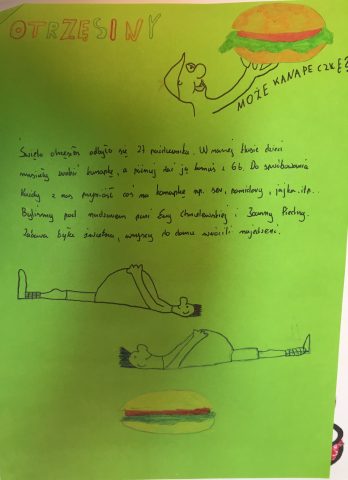 OTRZĘSINY
MOŻE KANAPECZKĘ?
Święto otrzęsin odbyło się 27 października. W naszej klasie dzieci
musiały zrobić kanapkę, a później dać ją komuś z 6b. Do spróbowania
Każdy z nas przyniósł coś na kanapkę np. ser, pomidory, jajka..itp..
Byliśmy pod nadzorem pani Ewy i Joanny
Zabawa była świetna, wszyscy do domu wrócili najedzeni.